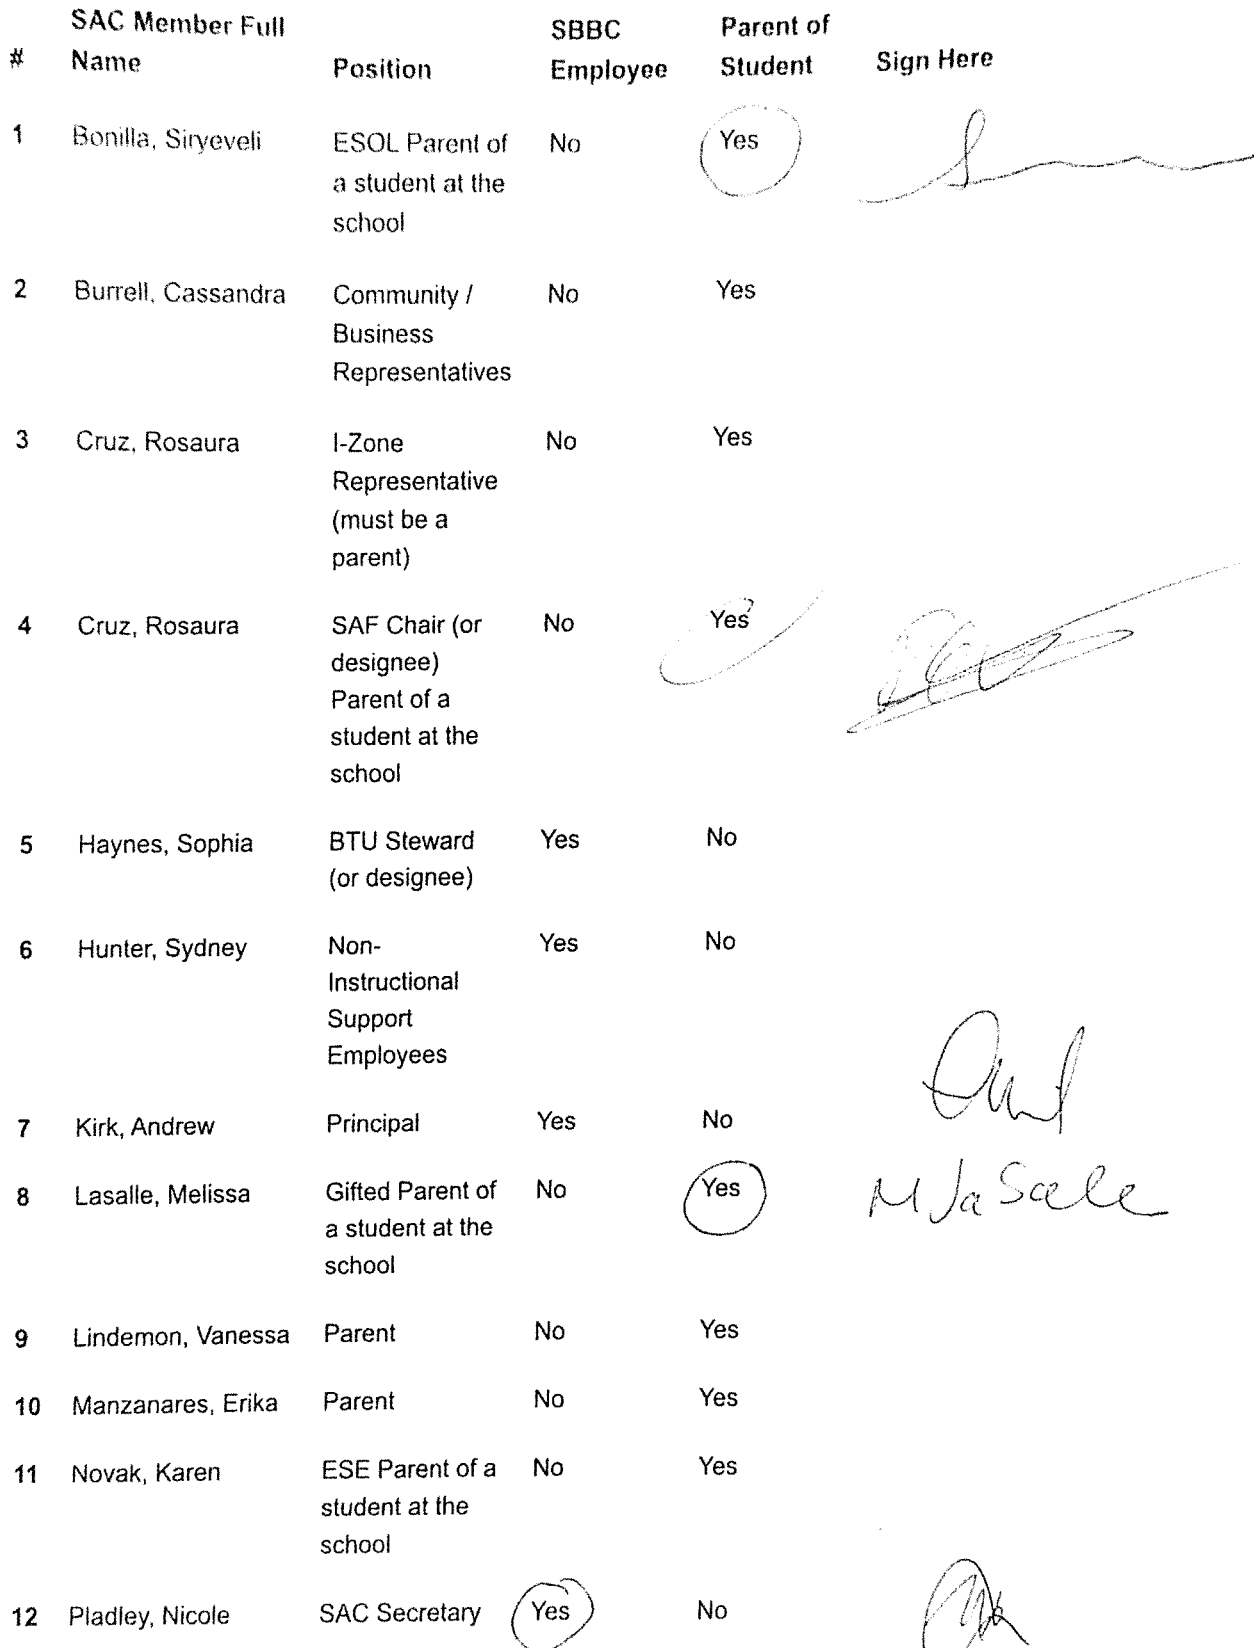 # SAC Member Full Name Position SBBC Employee Parent of Student Sign Here
1 Bonilla, Siryeveli ESOL Parent of No Yes
a student at the
school
2 Burrell, Cassandra Community / No Yes
Business
Representatives
3 Cruz, Rosaura I-Zone No Yes
Representative
(must be a
parent)
4 Cruz, Rosaura SAF Chair (or No Yes
designee)
Parent of a
student at the
school
5 Haynes, Sophia BTU Steward Yes No
(or designee)
6 Hunter, Sydney Non- Yes No
Instructional
Support
Employees
7 Kirk, Andrew Principal Yes No
8 Lasalle, Melissa Gifted Parent of No Yes M LaSalle
a student at the
school
9 Lindemon, Vanessa Parent No Yes
10 Manzanares, Erika Parent No Yes
11 Novak, Karen ESE Parent of a No Yes
student at the
school
12 Pladley, Nicole SAC Secretary Yes No